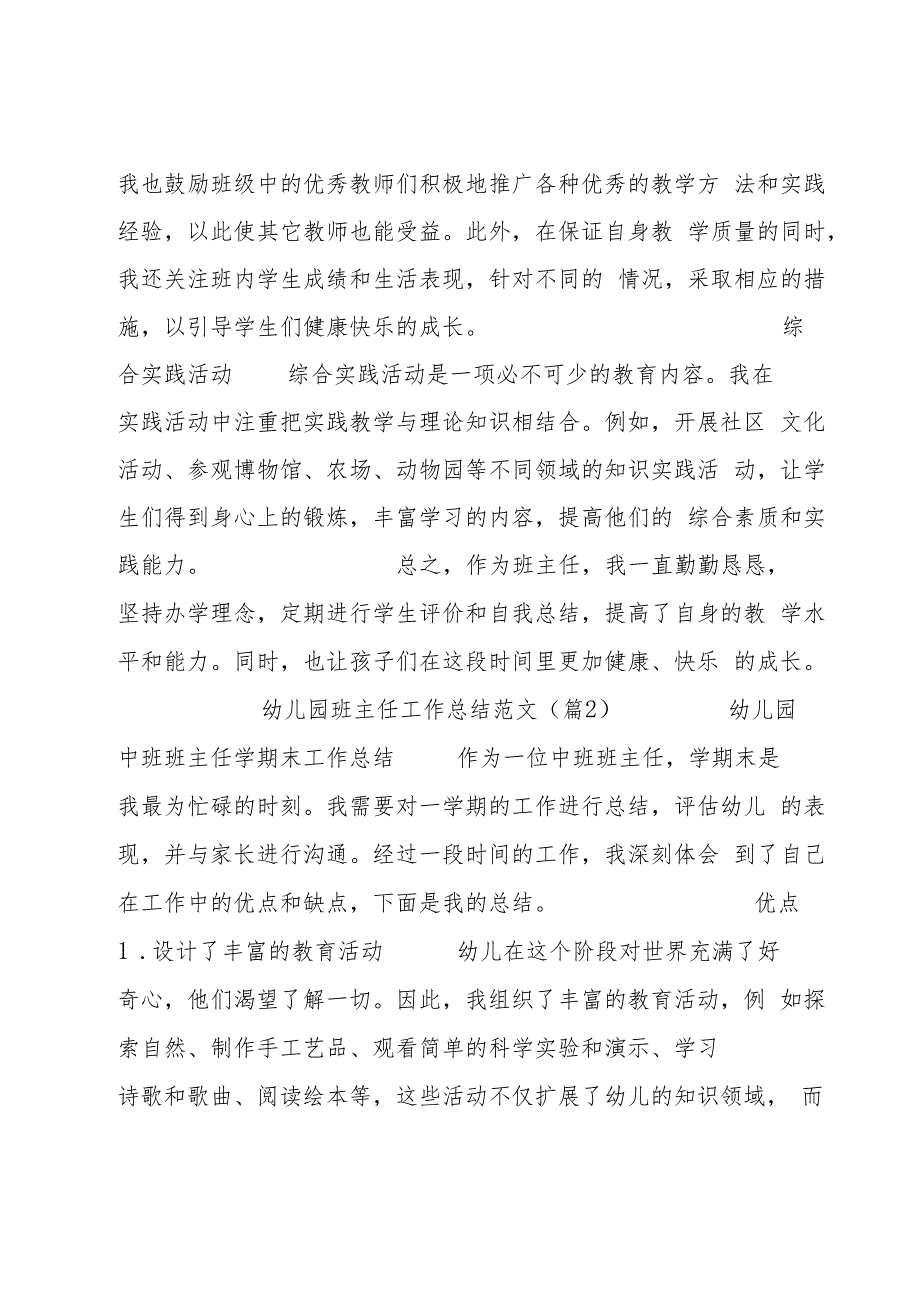 我也鼓励班级中的优秀教师们积极地推广各种优秀的教学方 法和实践
经验，以此使其它教师也能受益。此外，在保证自身教 学质量的同时，
我还关注班内学生成绩和生活表现，针对不同的 情况，采取相应的措
施，以引导学生们健康快乐的成长。 综
合实践活动 综合实践活动是一项必不可少的教育内容。我在
实践活动中注重把实践教学与理论知识相结合。例如，开展社区 文化
活动、参观博物馆、农场、动物园等不同领域的知识实践活 动，让学
生们得到身心上的锻炼，丰富学习的内容，提高他们的 综合素质和实
践能力。 总之，作为班主任，我一直勤勤恳恳，
坚持办学理念，定期进行学生评价和自我总结，提高了自身的教 学水
平和能力。同时，也让孩子们在这段时间里更加健康、快乐 的成长。
幼儿园班主任工作总结范文（篇2） 幼儿园
中班班主任学期末工作总结 作为一位中班班主任，学期末是
我最为忙碌的时刻。我需要对一学期的工作进行总结，评估幼儿 的表
现，并与家长进行沟通。经过一段时间的工作，我深刻体会 到了自己
在工作中的优点和缺点，下面是我的总结。 优点
1 .设计了丰富的教育活动 幼儿在这个阶段对世界充满了好
奇心，他们渴望了解一切。因此，我组织了丰富的教育活动，例 如探
索自然、制作手工艺品、观看简单的科学实验和演示、学习
诗歌和歌曲、阅读绘本等，这些活动不仅扩展了幼儿的知识领域， 而